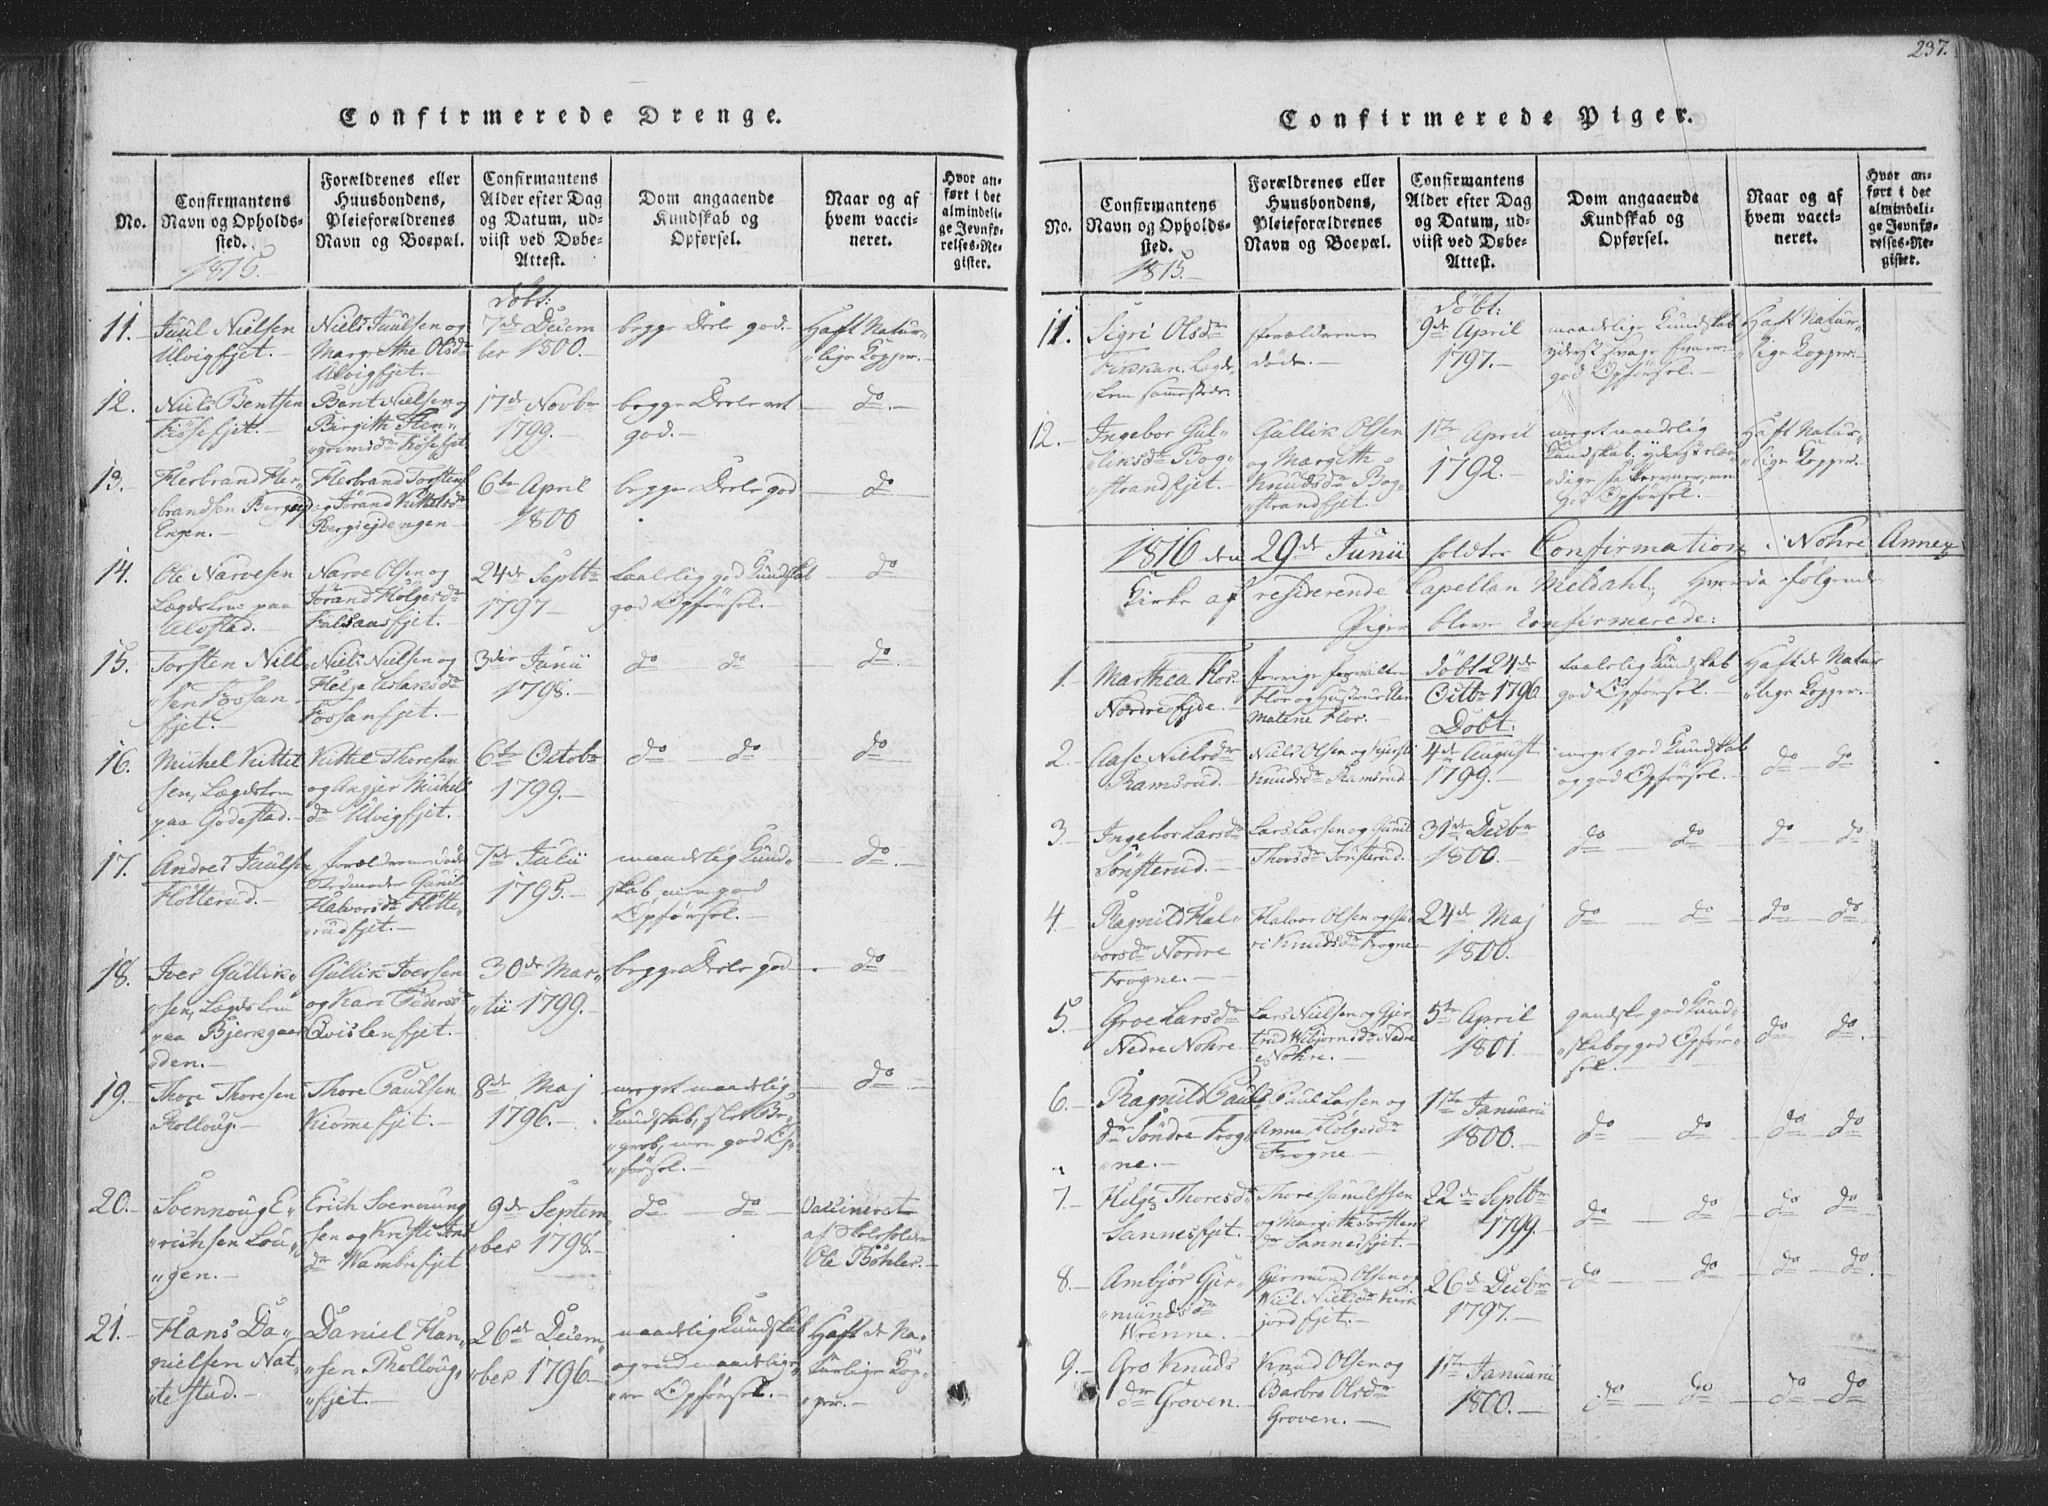 Confirmerede Drenge.
No.
Confirmantens
Navn og Opholds-
sted.
1815.
Forældrenes eller
Huusbondens,
Pleieforældrenes
Navn og Boepæl.
Confirmantens
Alder efter Dag
og Datum, ud-
viist ved Døbe-
Attest.
Dom angaaende
Kundskab og
Opførsel.
Naar og af
hvem vacci-
neret.
Hvor an-
ført i det
almindeli-
ge Jevnfø-
relses-Re-
gister.
11.
Juul Nielsen
Ulvigfjet.
Niels Juulsen og
Margrethe Olsdr
Ulvigfjet.
døbt:
7de Decem
ber 1800.
begge Deele god.
Haft Natur„
„lige Kopper.
12.
Niels Bentsen
Kiøsefjet.
Bent Nielsen og
Birgith Sten„
„grimsdr Kiøsefjet
17de Novbr
1799.
begge Deele
god.
do
13.
Herbrand Her„
„brandsen
Engen.
Herbrand Torstens
og Jörand Kittelsdr
Bergiejdengen
6te April
1800
begge Deele god
do
14.
Ole Narvesen
Lægdslem paa
Alvstad.
Narve Olsen og
Jörand Holgersdr
Falsaasfjet.
24de Septbr
1797
taalelig god Kundskab
god Opførsel.
do
15.
Torsten Niel
„sen Fossan
fjet.
Niels Nielsen og
Helga Aslaksdr
Fossanfjet.
3die Junii
1798.
do do
do
16.
Michel Kittel
sen, Lægdslem
paa Godestad.
Kittil Thoresen
og Angjer Michels
dr Ulvigfjet.
6te Octobr
1799.
do do
do
17.
Andres Juulsen
Hotterud.
forældrene døde
Gunild
Halvorsdr Hotte„
„rudfjet.
7de Julii
1795.
maadelig Kund„
skab, men god
Opførsel.
do
18.
Iver Gullik„
„sen, Lægdslem
paa Bjerkgaar
den.
Gullik Iversen
og Kari Pedersdr
Qvislenfjet.
30de Mar„
„tii 1799.
begge Deele god
do
19.
Thore Thoresen
Rolloug.
Thore Paulsen
Kiomefjet.
8de Maj
1796.
meget maadelig
Kundskab, slet Be„
„greb, men god Op„
„førsel.
do
20.
Svennoug E„
„richsen Lou„
„gen.
Erich Svennung
sen og Kristi
dr Wambrefjet
9de Septem„
„ber 1798.
do do
Vaccineret
af Skoleholder
Ole Bøhler.
21.
Hans Da„
„nielsen Nat„
„te stad.
Daniel Han„
„sen Rolloug„
„fjet.
26de Decem„
„ber 1796.
maadelig Kundskab
og
Opførsel.
Haft de Na„
turlige Kop„
„per.
237.
Confirmerede Piger.
No.
Confirmantens
Navn og Opholds-
sted.
1815.
Forældrenes eller
Huusbondens,
Pleieforældrenes
Navn og Boepæl.
Confirmantens
Alder efter Dag
og Datum, ud-
viist ved Døbe-
Attest.
Dom angaaende
Kundskab og
Opførsel.
Naar og af
hvem vacci-
neret.
Hvor an-
ført i det
almindeli-
ge Jevnfø-
relses-Re-
gister.
11.
Sigri Olsdr
Lægds„
„lem sammesteds.
forældrene
døde.
Döbt:
9de April
1797.
maadelige Kundskab
yderst svage Evner
god Opførsel.
Haft Natur„
„lige Kopper.
12.
Ingebor Gul„
„liksdr Bog„
„strandfjet.
Gullik Olsen
og Margith
Knudsdr Bog„
„strandfjet.
1ste April
1792.
meget maadelig
Kundskab, yderst
men
god Opførsel.
Haft Natur„
„lige Kopper.
1816 den 29de Junii holdtes Confirmation i Nohre Annex
Kirke af residerende Capellan Meldahl, Hvorda følgende
Piger bleve Confirmerede:
1.
Marthea Flor.
Nordre Fjde.
forrige forvalter
Flor og Hustrue Elen
Malene Flor.
Döbt 24de
Octbr 1796
taalelig Kundskab
god Opførsel.
Haft de Natur
„lige Kopper.
2.
Aase Nielsdr
Ramsrud.
Niels Olsen og Kjersti
Knudsdr Ramsrud.
Döbt:
4de August
1799.
meget god Kundskab
og god Opførsel.
do do
3.
Ingebor Larsdr
Sönsterud.
Lars Larsen og Gunil
Thorsdr Sönsterud.
31te Decbr
1800.
do do
do do
4.
Ragnild Hal„
vorsdr Nordre
Frogne.
Halvor Olsen og Gu„
ri Knudsdr Frogne
24de Maj
1800.
do do
do do
5.
Groe Larsdr
Nedre Nohre.
Lars Nielsen og Gjer„
trud Wibjörnsdr Nedre
Nohre.
5te April
1801.
gandske god Kund„
„skab og god Opför„
sel.
do do
6.
Ragnild Pauls
dr Söndre Frog„
„ne.
Paul Larsen og
Anne Holgersdr
Frogne.
1ste Januarii
1800.
do do
do do
7.
Helge Thoresdr
Sannesfjet.
Thore Gunulfsen
og Margith Torstens
dr Sannesfjet.
22de Septbr
1799.
do do
do do
8.
Ambjør Gjer„
„mundsdr
Wrenne.
Gjermund Olsen og
Nielsdr Kirk
jordfjet.
26de Decbr
1797.
do do
do do
9.
Gro Knuds
dr Groven.
Knud Olsen og
Barbro Olsdr
Groven.
1ste Januarii
1800.
do do
do do